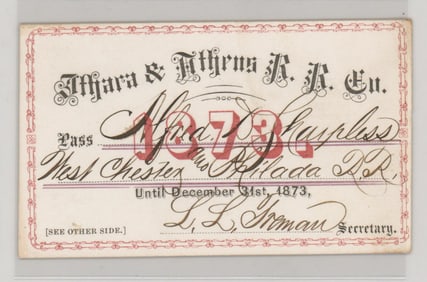 Ithaca & Athens R. R. Co.
1873.
Pass Alfred D. Sharpless
West Chester and Philada R.R.
Until December 31st, 1873,
L. L. Froman Secretary.
[SEE OTHER SIDE.]